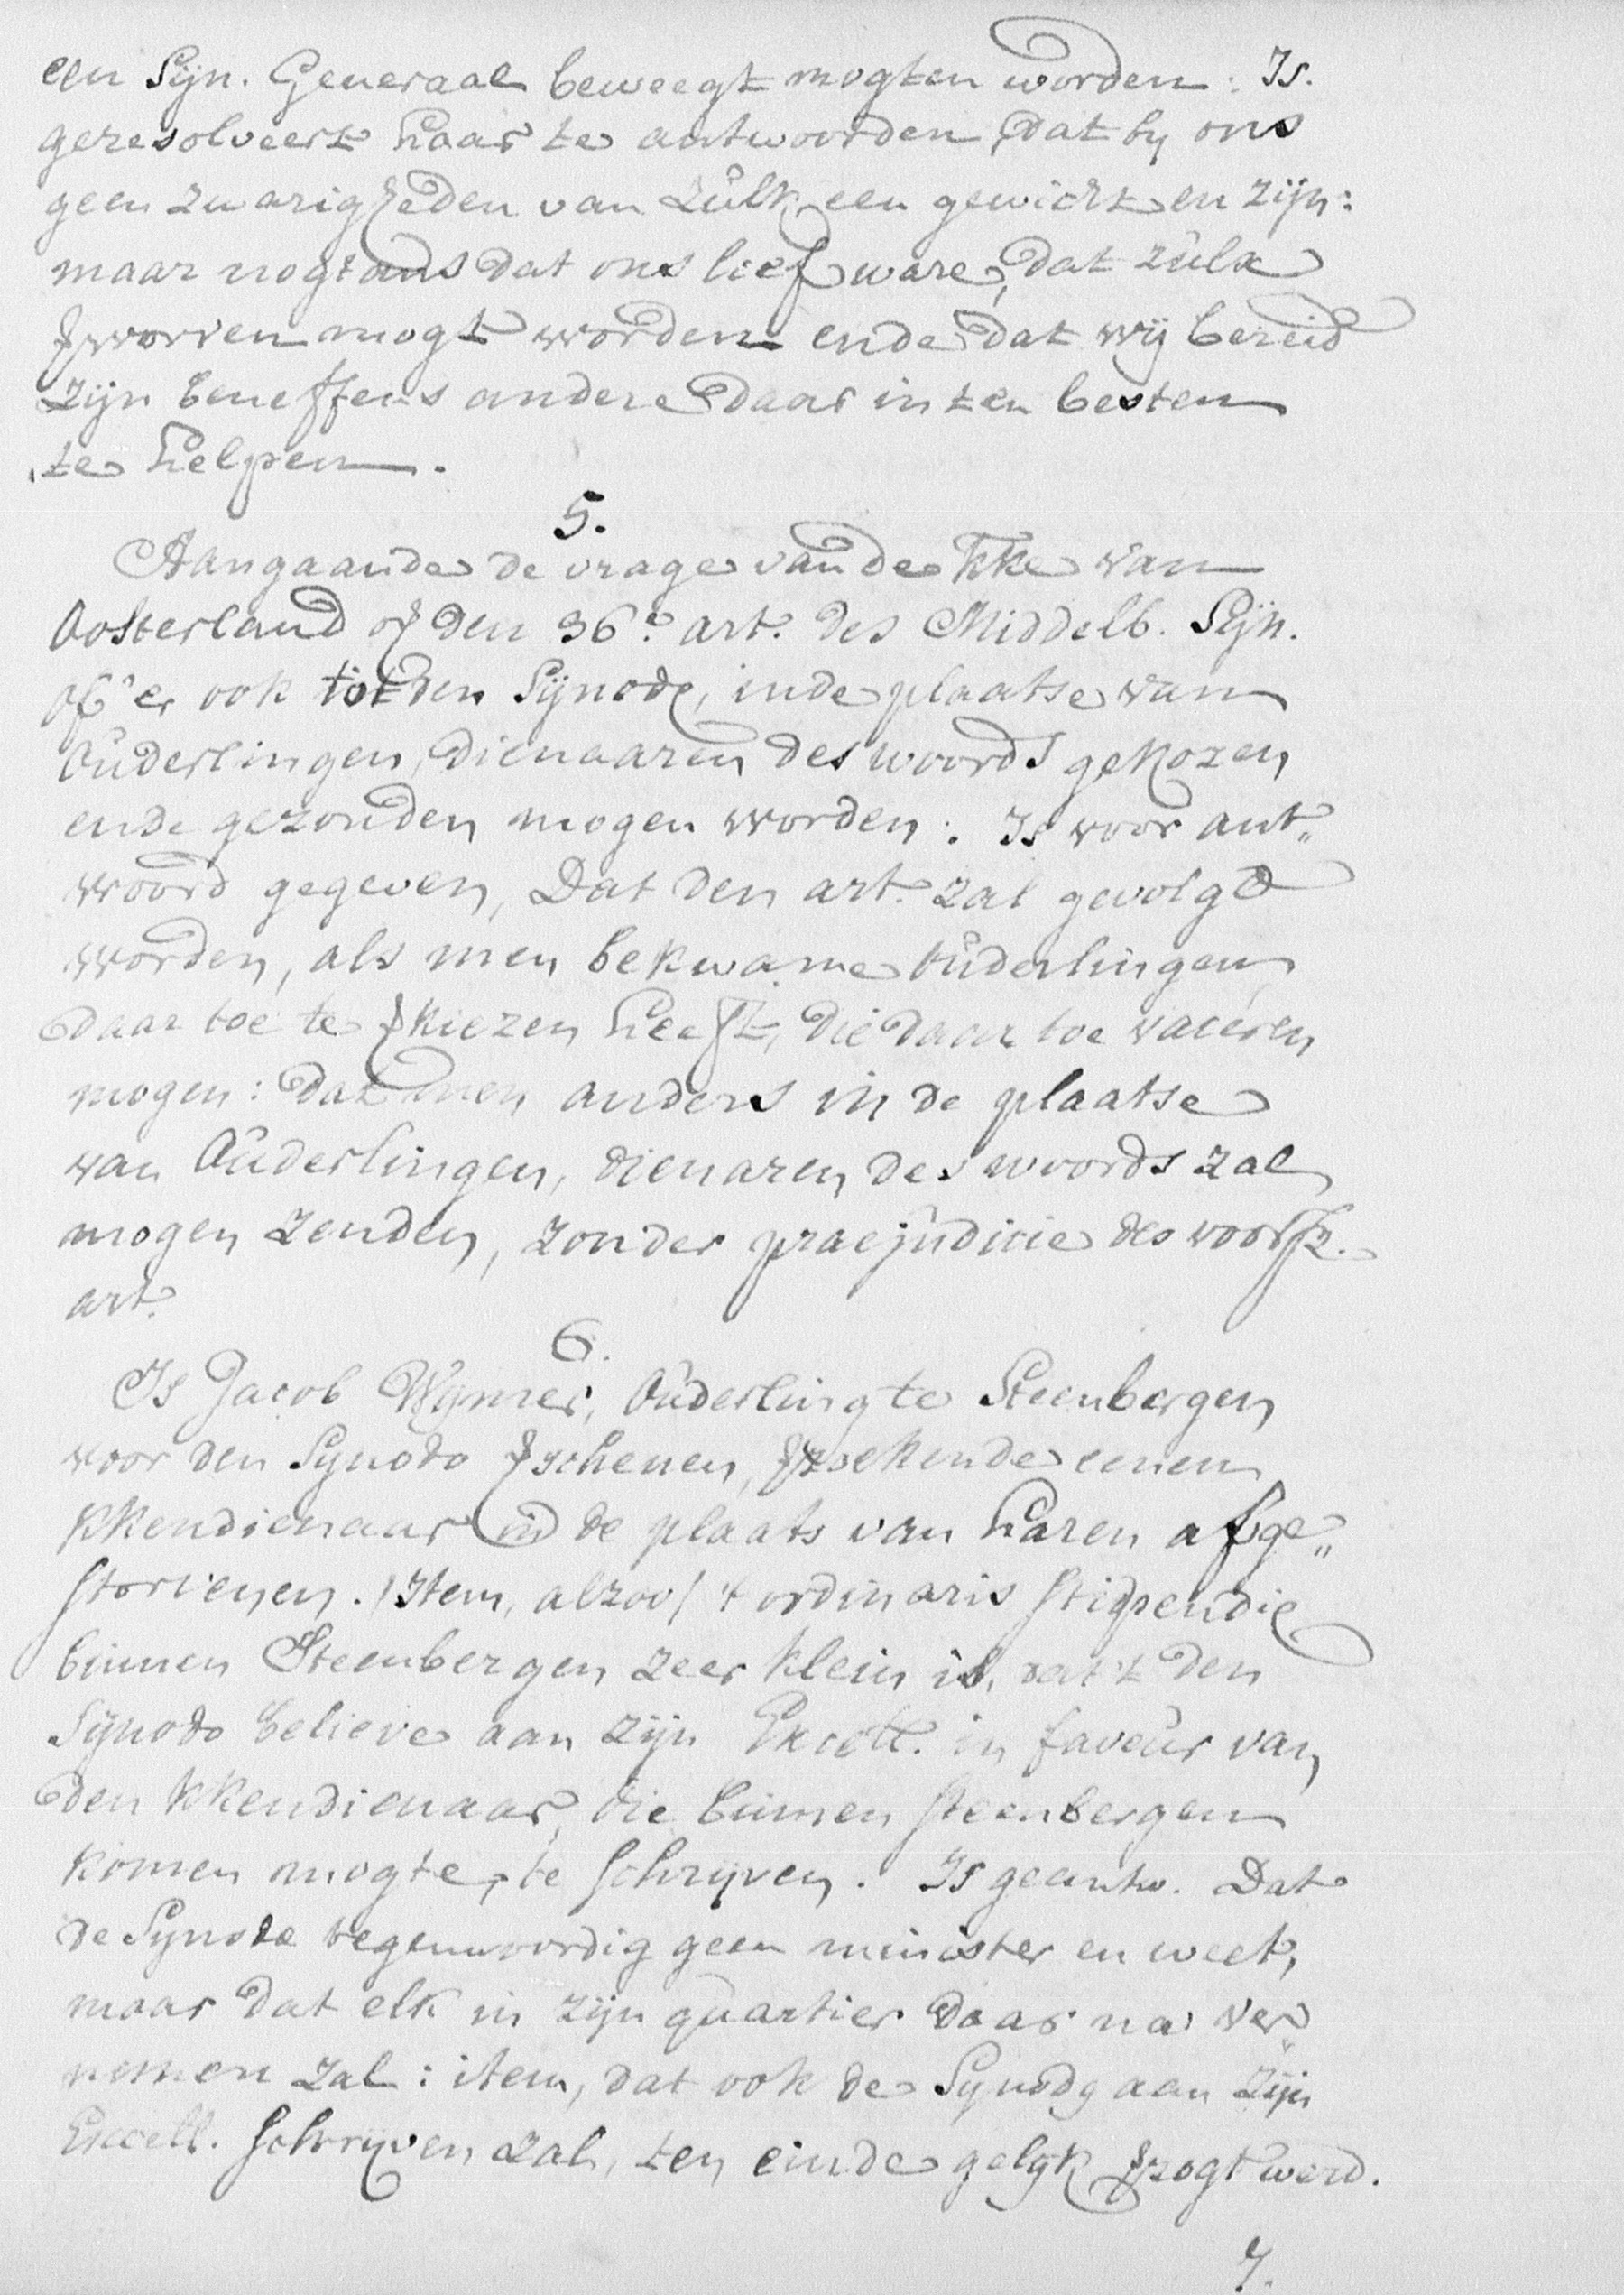 een Sijn. Generaal beweegt mogten worden: Is.
geresolveert haar te antwoorden, dat by ons
geen zwarigheden van zulk een gewicht en zijn:
maar nogtans dat ons lief ware, dat zulx
ꝟworven mogt worden ende dat wij bereid
zijn beneffens andere daar in ten besten
te helpen.
5.
Aangaande de vrage van de kke van
Oosterland of den 36.e art. des Middelb. Sijn.
of 'er ook tot den Sijnode, in de plaatse van
Ouderlingen, dienaaren des woords gekozen
ende gezonden mogen worden: Is voor ant„
woord gegeven, Dat den art. zal gevolgd
worden, als men bekwame Ouderlingen
daar toe te ꝟkiezen heeft, die daar toe vaceren
mogen: dat men anders in de plaatse
van Ouderlingen, dienaren des woords zal
mogen zenden, zonder praejudicie des voorsz.
art.
6.
Is Jacob Ouderling te Steenbergen
voor den Synodo ꝟschenen, ꝟzoekende eenen
kkendienaar in de plaats van haren afge„
storvenen. Item, alzoo 't ordinaris stipendie
binnen Steenbergen zeer klein is, dat 't den
Sijnodo believe aan zijn Excell. in faveur van
den kkendienaar, die binnen steenbergen
komen mogte, te schrijven. Is geantw. Dat
de Synode tegenwoordig geen minister en weet,
maar dat elk in zijn quartier daar na ver„
nemen zal: item, dat ook de Synode aan zijn
Excell. schrijven zal, ten einde gelijk ꝟzogt werd.
7.